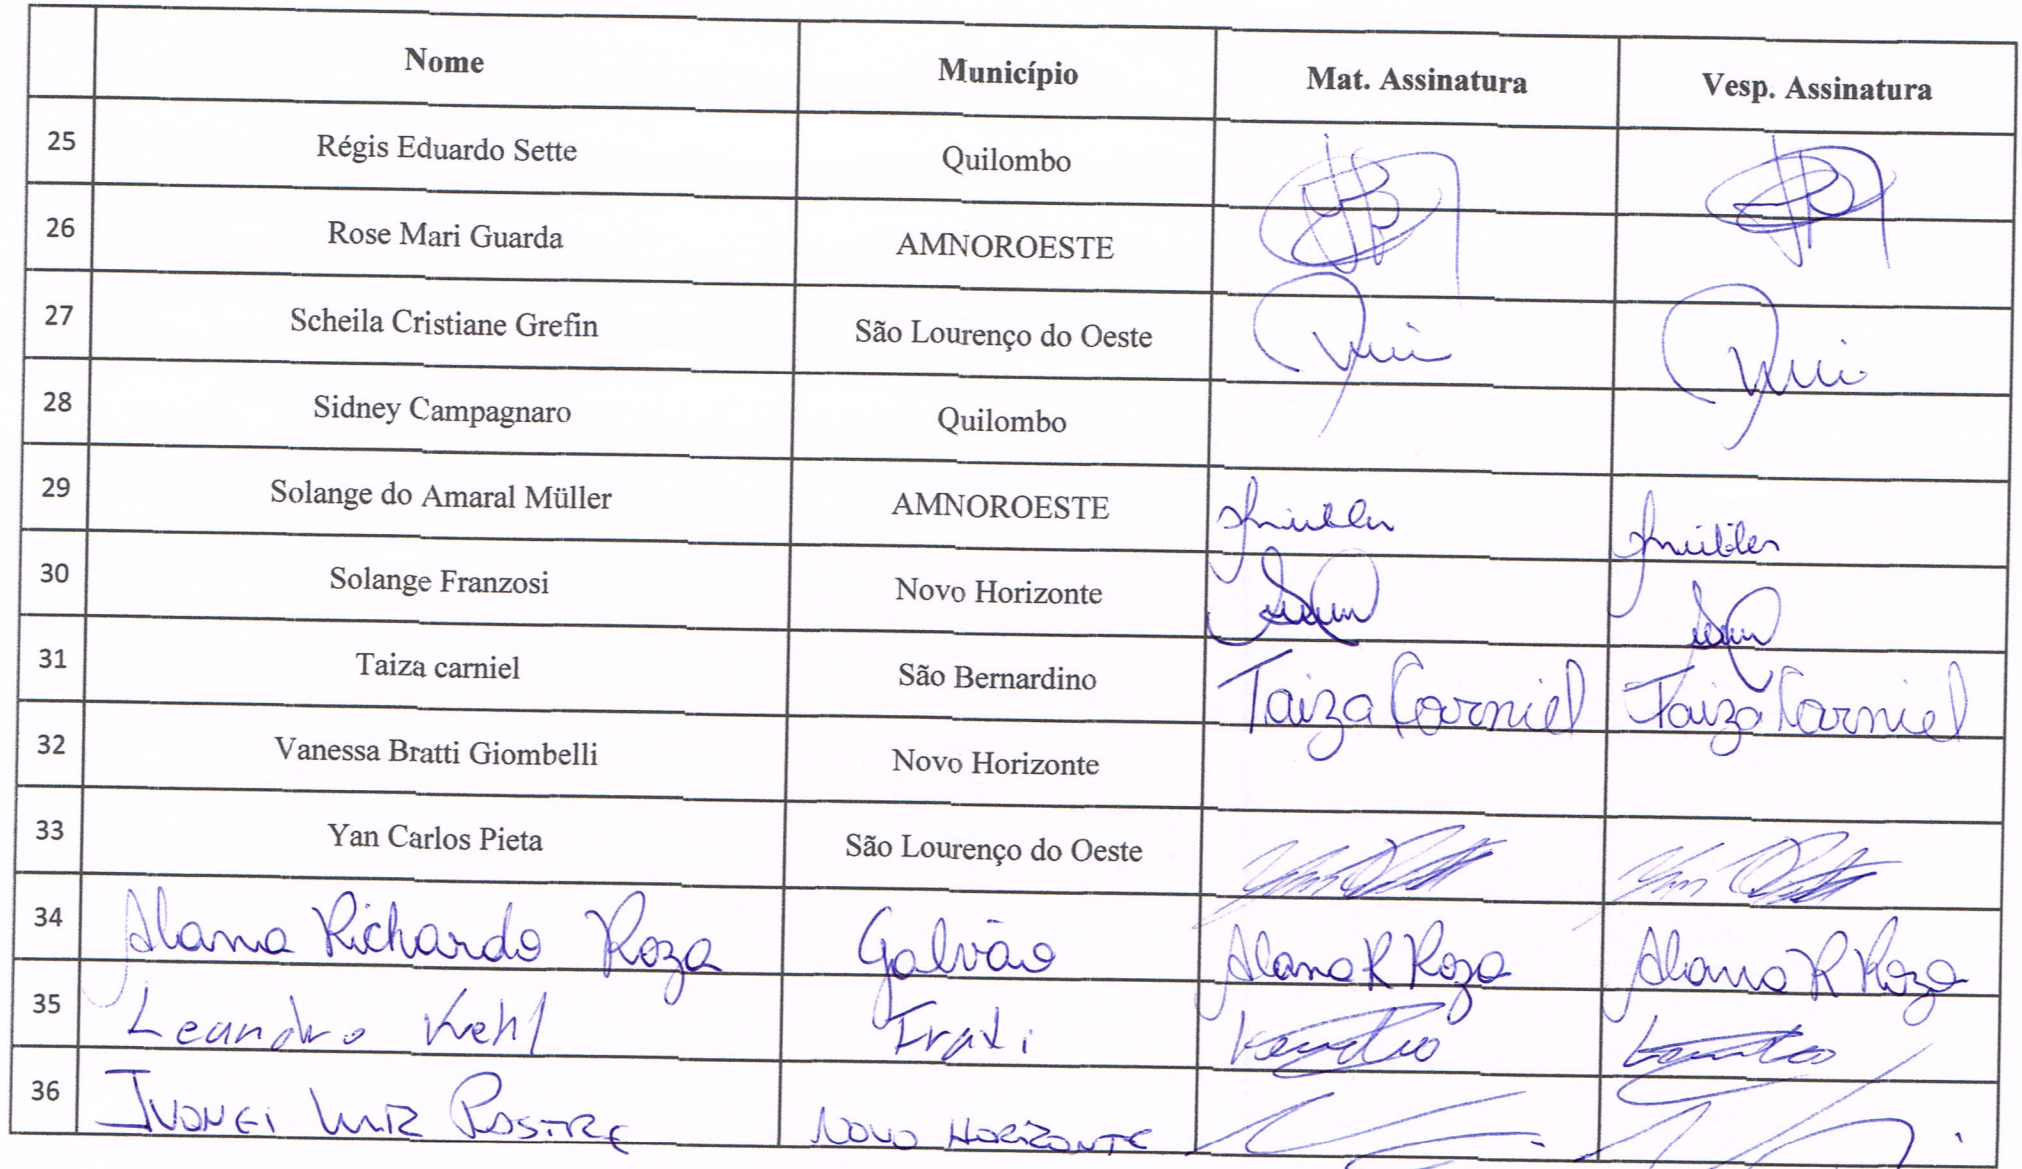 Nome Município Mat. Assinatura Vesp. Assinatura
25 Régis Eduardo Sette Quilombo
26 Rose Mari Guarda AMNOROESTE
27 Scheila Cristiane Grefin São Lourenço do Oeste
28 Sidney Campagnaro Quilombo
29 Solange do Amaral Müller AMNOROESTE
30 Solange Franzosi Novo Horizonte
31 Taiza carniel São Bernardino Taiza Carniel Taiza Carniel
32 Vanessa Bratti Giombelli Novo Horizonte
33 Yan Carlos Pieta São Lourenço do Oeste
34 Alana Richardo Roza Galvão Alana R Roza Alana R Roza
35 Leandro Kehl Irati
36 Ivonei Luiz Novo Horizonte